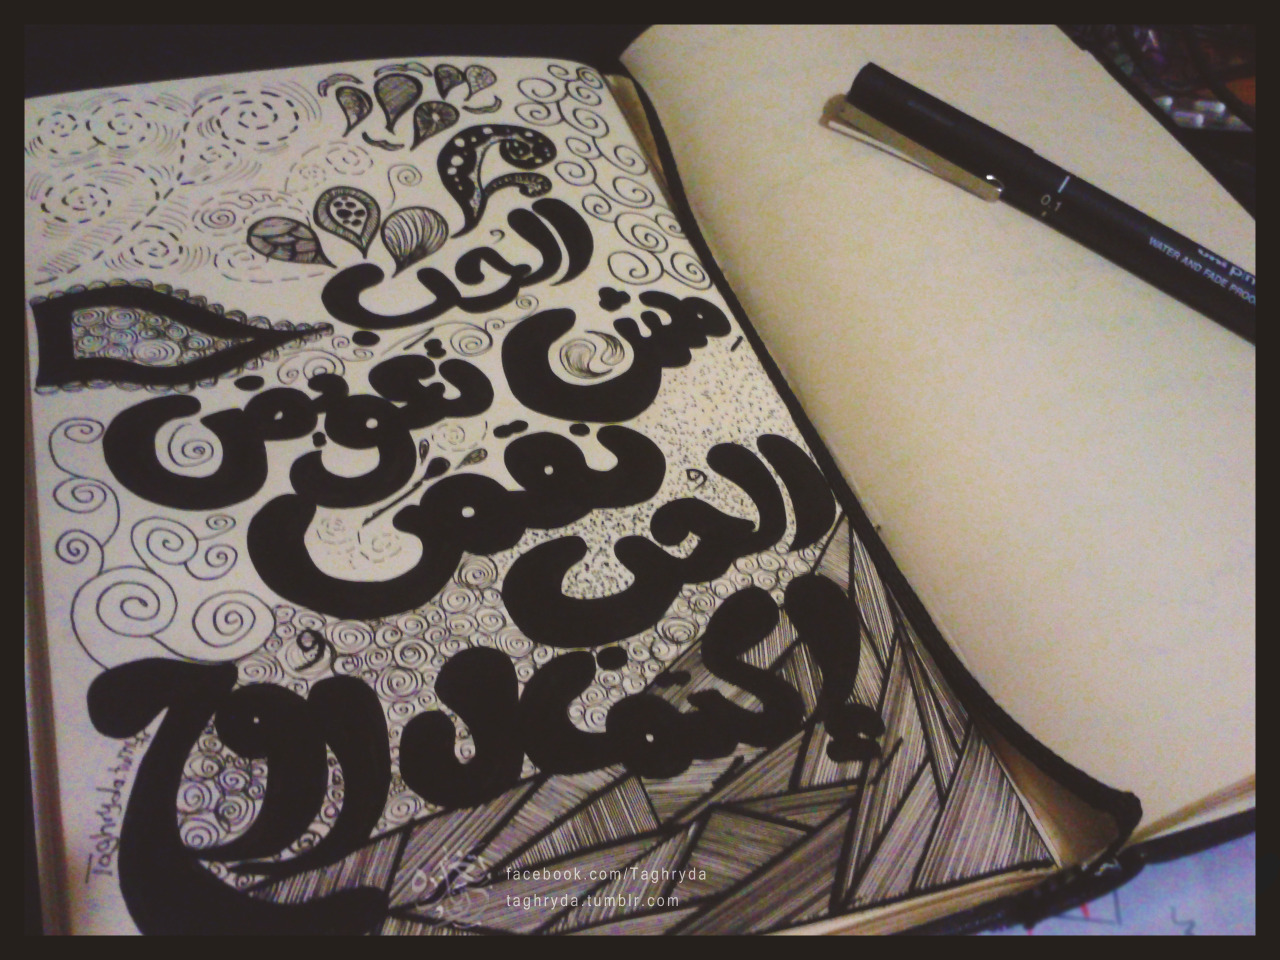 الحب
مش تعويض
نقص
الحب
إكتمال روح
Taghryda.tumblr
facebook.com/Taghryda
taghryda.tumblr.com
0.1
uni pin
WATER AND FADE PROO